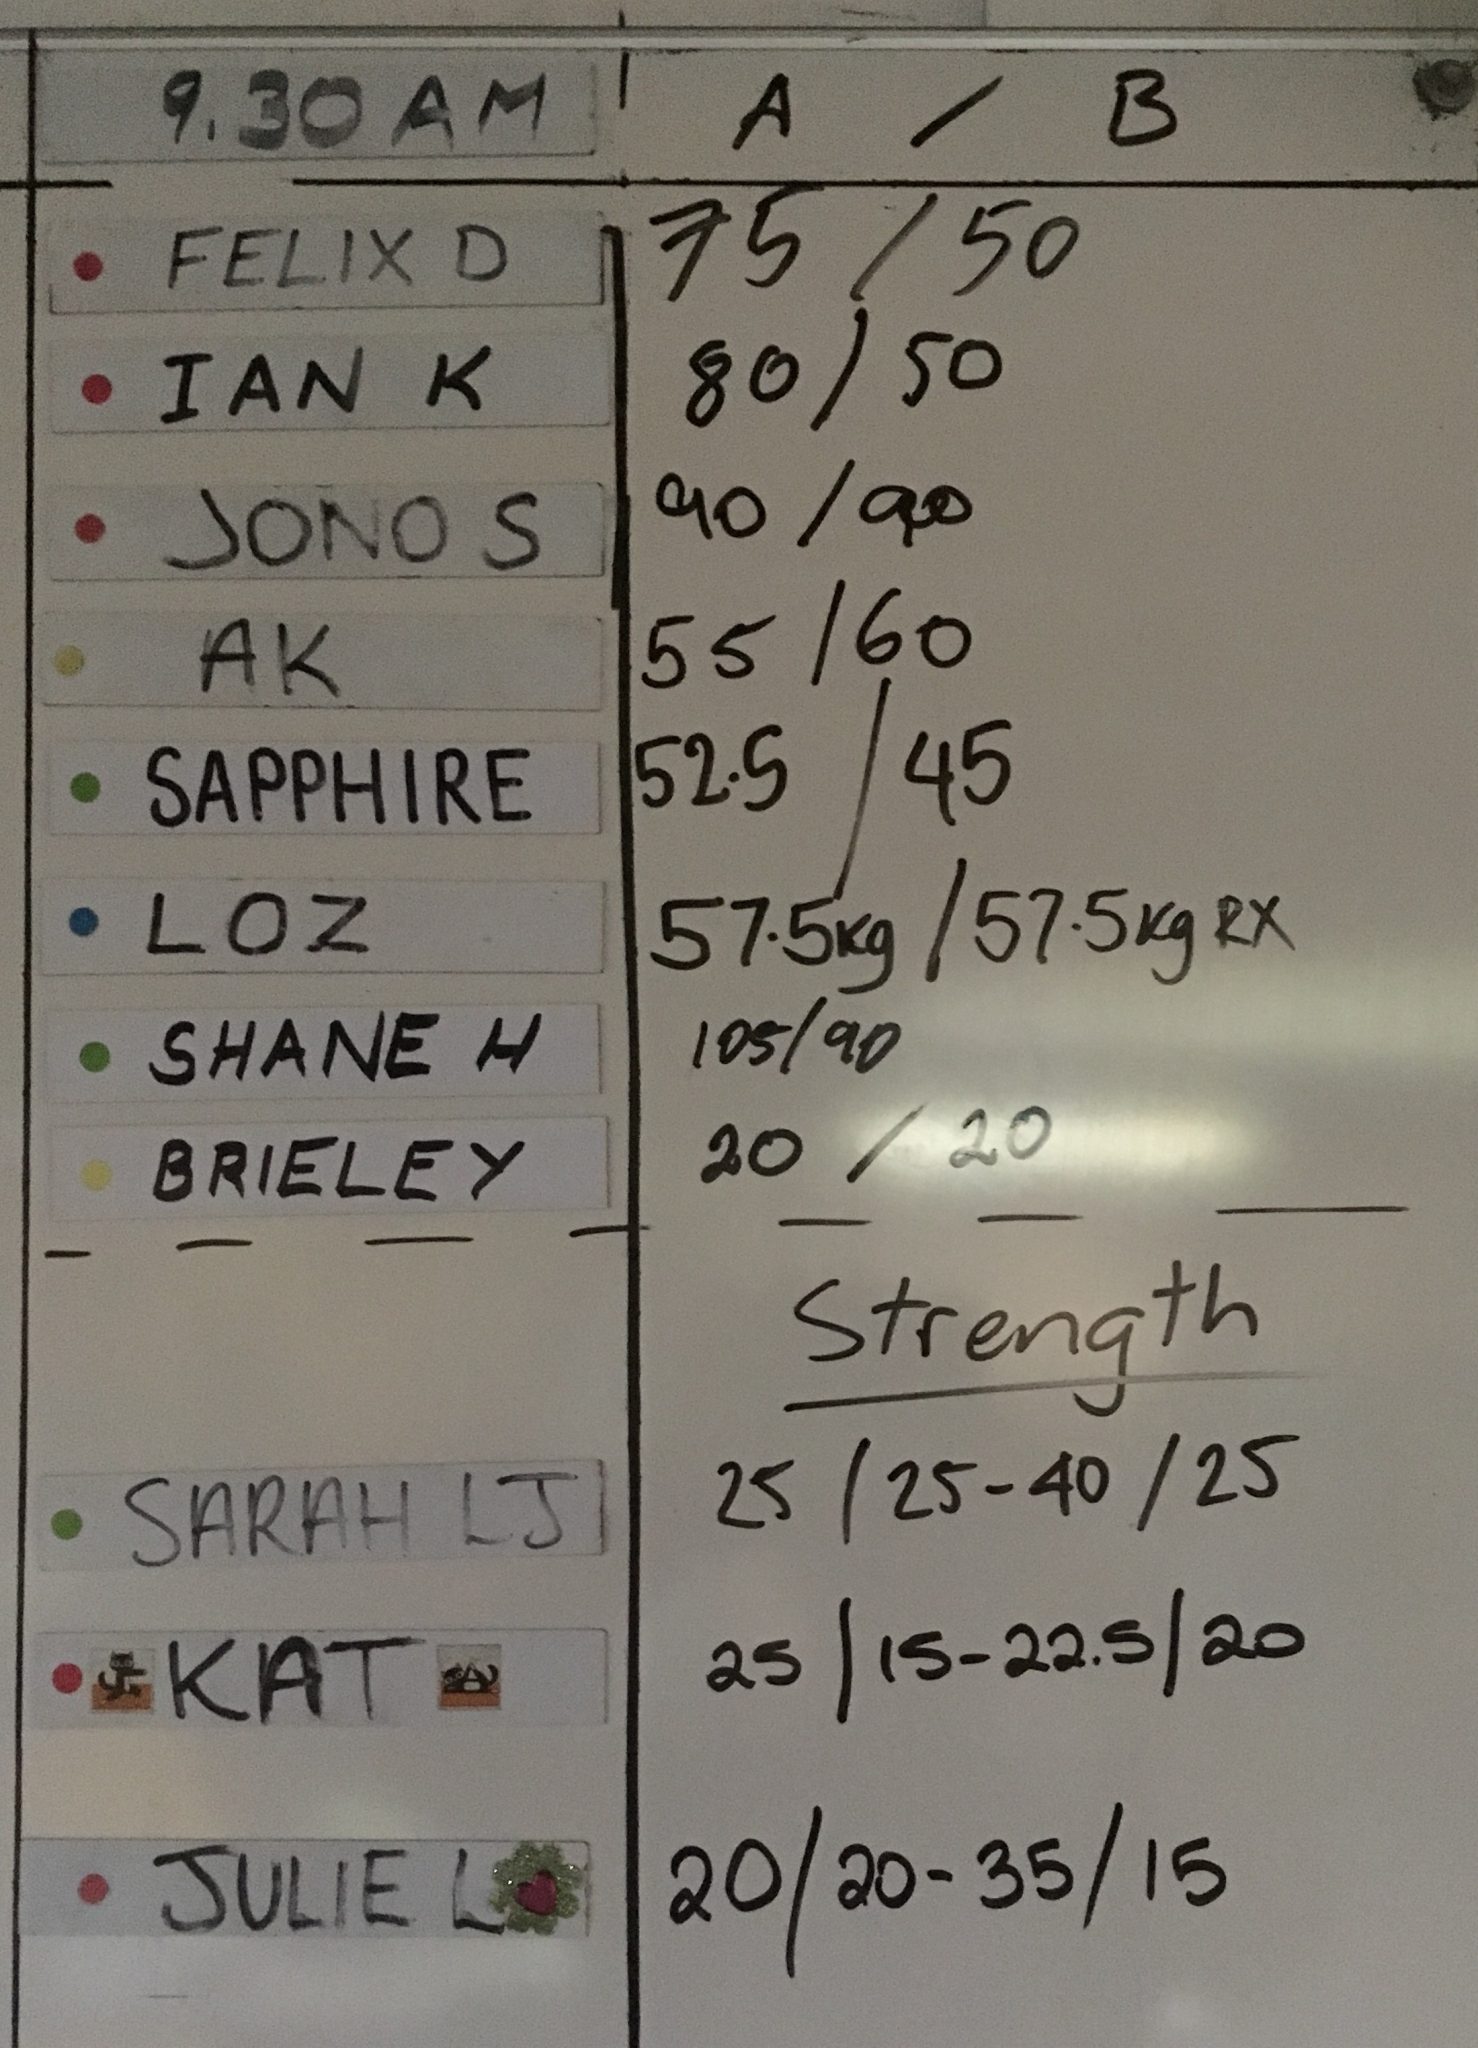 9.30 AM A / B
FELIX D 75 / 50
IAN K 80 / 50
JONO S 90 / 90
AK 55 / 60
SAPPHIRE 52.5 / 45
LOZ 57.5kg / 57.5kg RX
SHANE H 105/90
BRIELEY 20 / 20
Strength
SARAH LJ 25 / 25-40 / 25
KAT 25 / 15-22.5 / 20
JULIE L 20 / 20-35 / 15